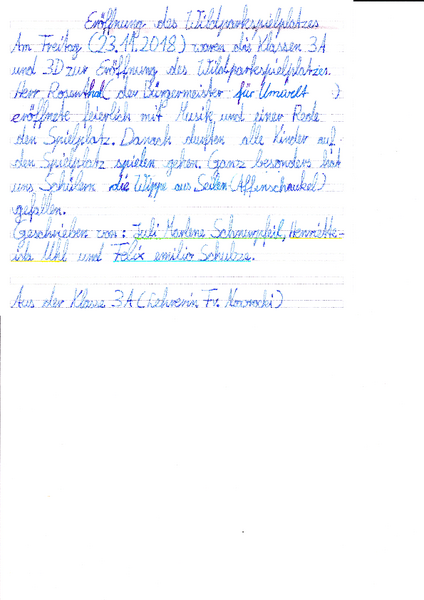 Eröffnung des Wildparkspielplatzes
Am Freitag (23.11.2018) waren die Klassen 3A
und 3D zur Eröffnung des Wildparkspielplatzes.
Herr Rosenthal (der Bürgermeister für Umwelt )
eröffnete feierlich mit Musik und einer Rede
den Spielplatz. Danach durften alle Kinder auf
den Spielplatz spielen gehen. Ganz besonders hat
uns Schülern die Wippe aus Seilen (Affenschaukel)
gefallen.
Geschrieben von: Juli Marlene Henriette-
Uhl und Felix emilio Schulze.
Aus der Klasse 3A (Lehrerin Fr. Nowrocki)